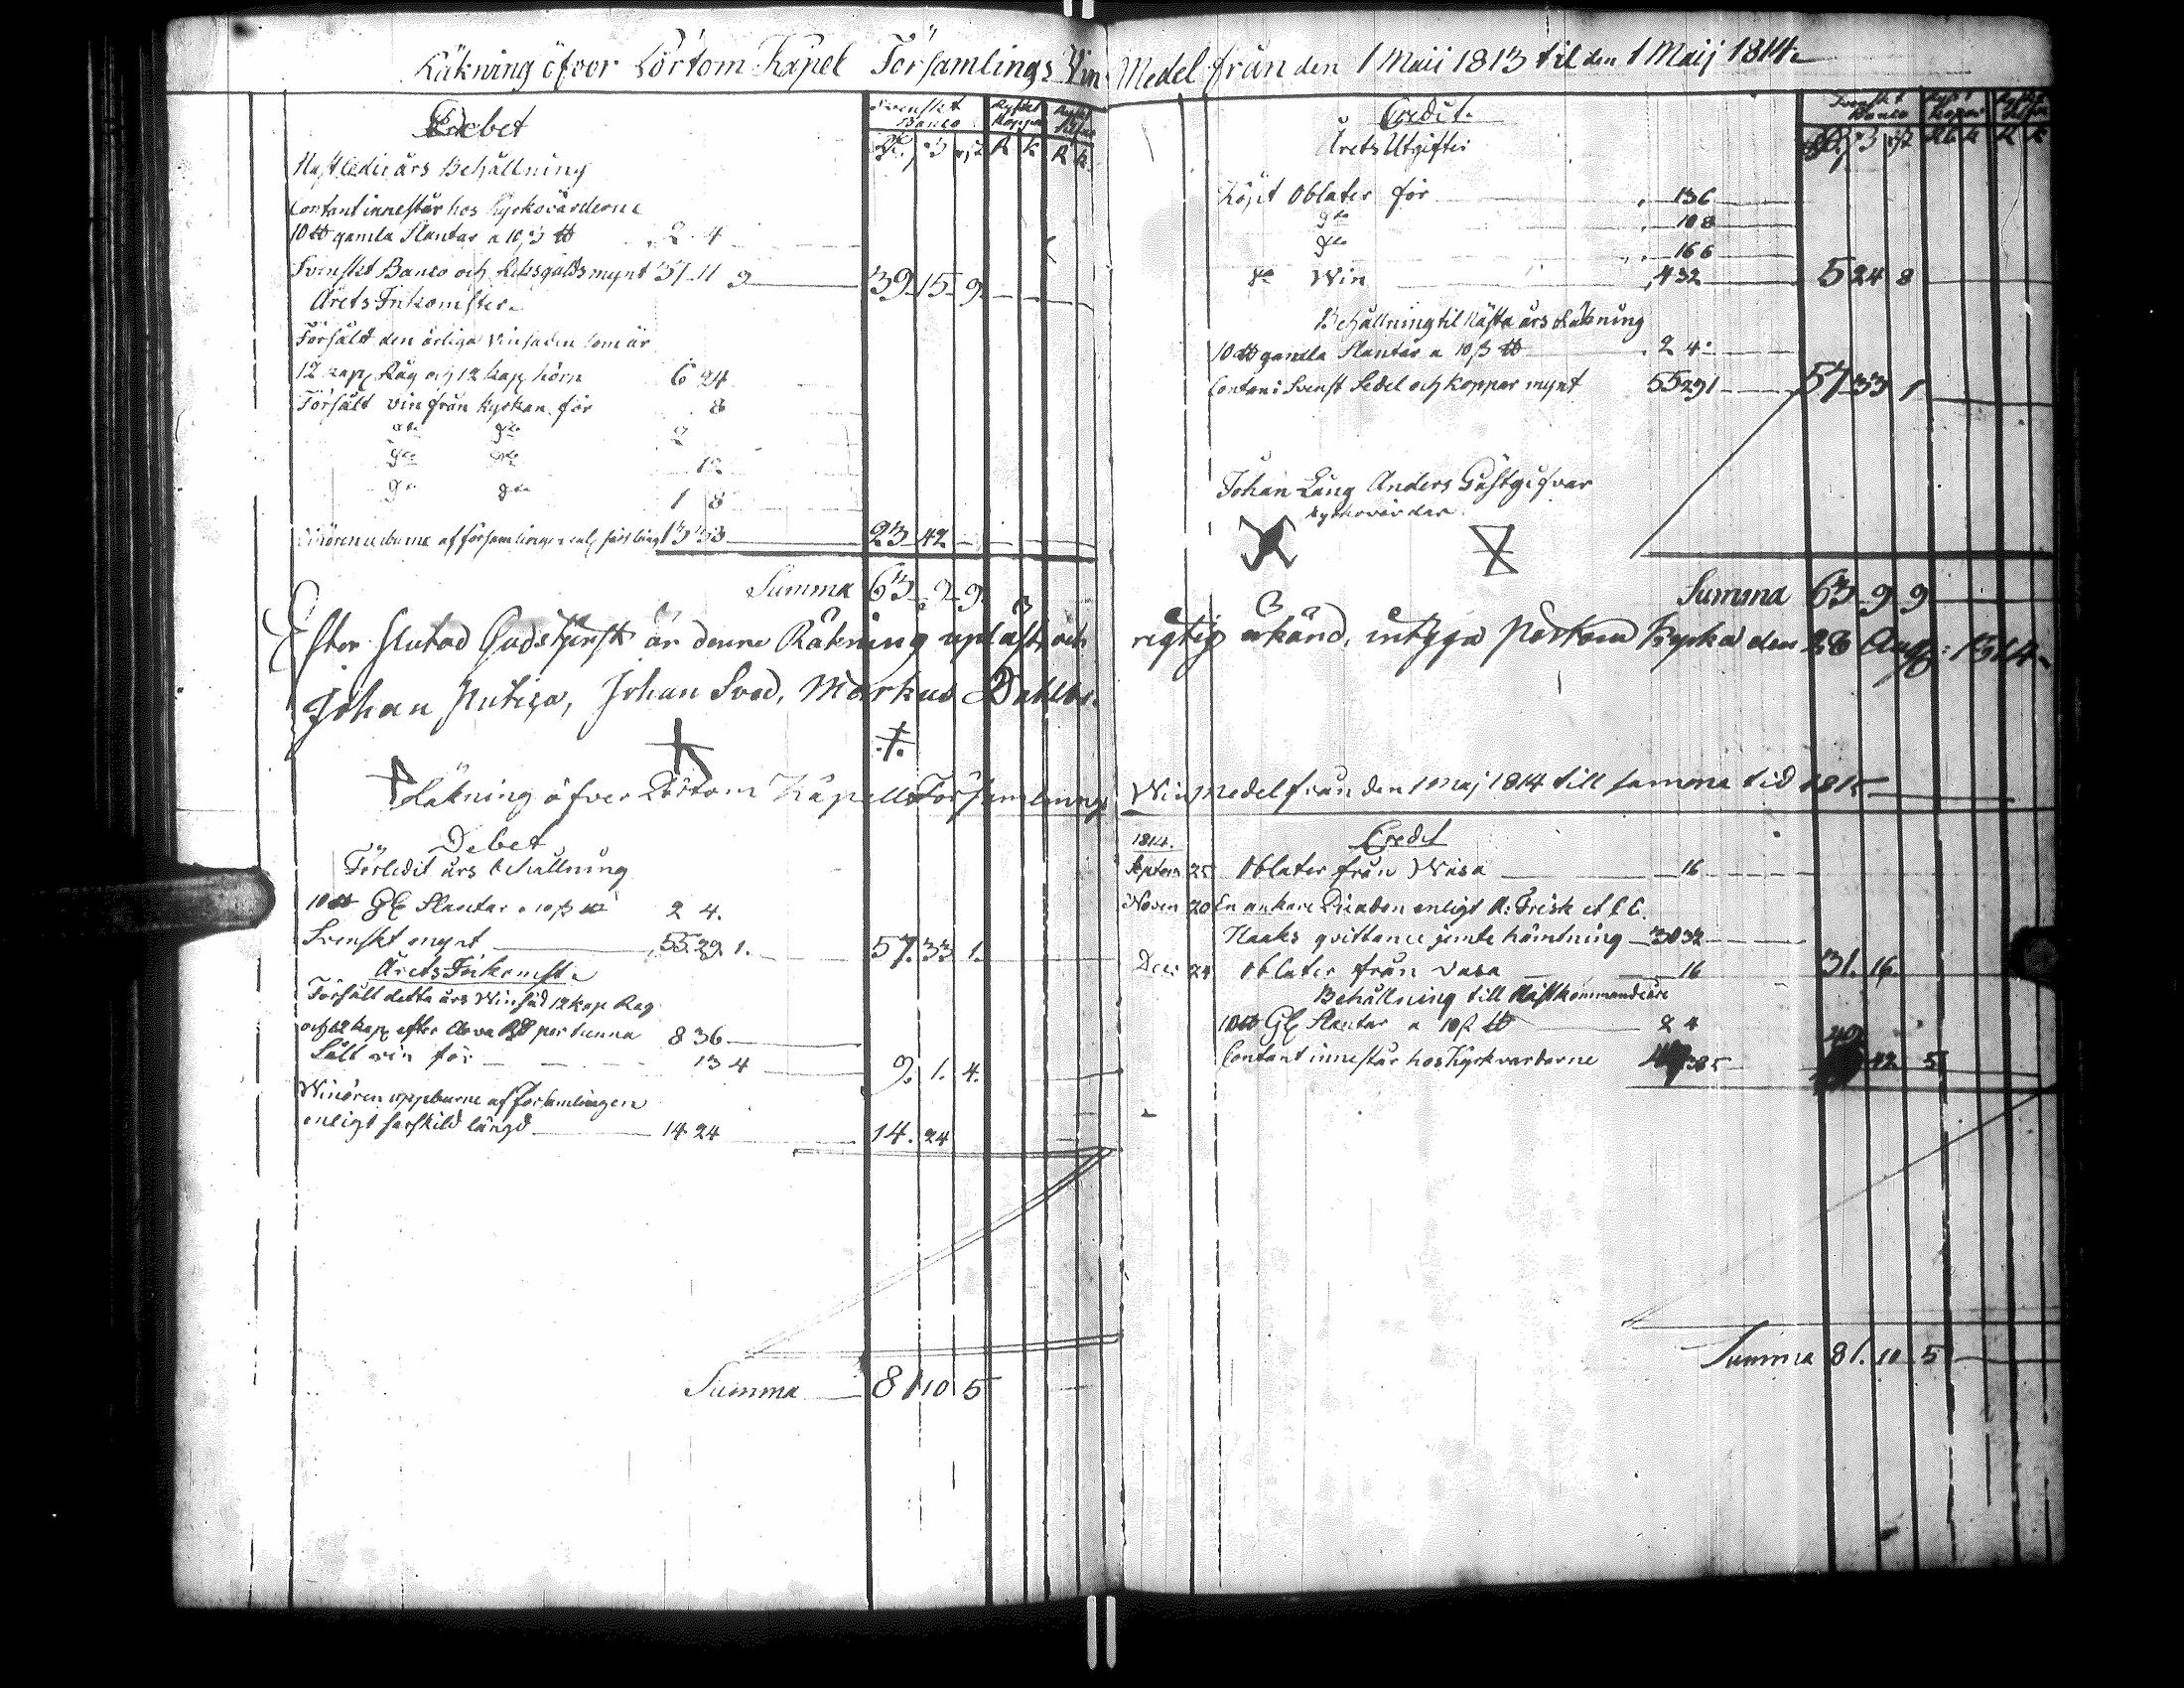 Räkning öfver Pörtom Kapel Församlings Win
Debet
Svenskt Banco
Ryskt Koppar
Rd. ß rst R K R K
Nästledit års Behållning
Contant innestår hos Kyrkovärderne
10 ℔ gamla Slantar a 10 ß ℔ 2 4
Svenskt Banco och Riksgälds mynt 37 11 9 39 15 9
Årets Inkomster
Försåldt den årliga vinsaden som är
12 kap. Råg och 12 kap. korn 6 24
Försålt vin från kyrkan för 8
dto dto 2
dto dto
dto dto 1 8
Winören upburne af församlingen enl. särs. längd 13 33 23 42
Summa 63 9 9
Efter slutad Gudstjenst är denne Räkning upläst och
Johan Johan Markus
Räkning öfver Pörtom Kapells Församlings
Debet
Förledit års behållning
10 ℔ Gl. Slantar a 10 ß ℔ 2 4.
Svenskt mynt 55. 29. 1. 57. 33. 1.
Årets Inkomster
Försålt detta års Winsäd 12 kap Råg
och 12 kap. efter per tunna 8 36
Sålt vin för 13 4 9. 1. 4.
Winören uppburne af församlingen
enligt särskild längd 14 24 14. 24
Summa 81 10 5
Medel från den 1 Maii 1813 til den 1 Maij 1814
Credit
Årets Utgifter
Svenskt Banco
Köpt Oblater för 13 6
dto 10 8
dto 16 6
dto Win 4 32 5 24 8
Behållning til Nästa års Räkning
10 ℔ gamla Slantar a 10 ß ℔ 2 4
Contant Svensk Sedel och koppar mynt 55 29 1 57 33 1
Johan Lång Anders Gästgifvar
kyrkovärdar
Summa 63 9 9
rigtig erkänd, intyga Pörtom Kyrka den 28 Aug: 1814
Win Medel från den 1 Maj 1814 till samma tid 1815
1814. Credit
Septem 25 Oblater från Wasa 16
Novem 20 En ankare enligt A: Frisk et C.
Haaks qvittance jemte hämtning 30 32
Dec: 24 Oblater från Vasa 16 31. 16.
Behållning till Nästkommande år
10 ℔ Gl. Slantar a 10 ß ℔ 2 4
Contant innestår hos Kyrkvärdarne 38 5 49 42 5
Summa 81. 10 5